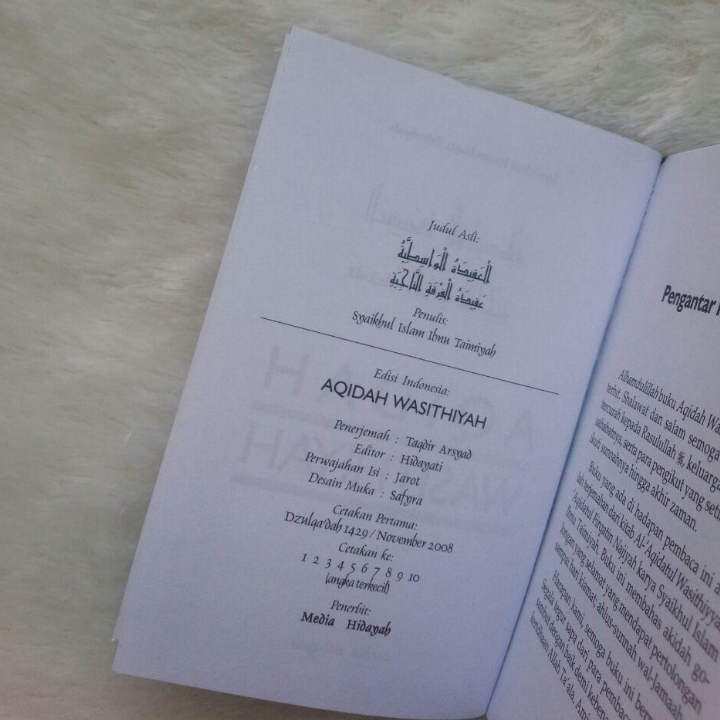 Judul Asli:
الْعَقِيدَةُ الْوَاسِطِيَّةُ
عَقِيدَةُ الْفِرْقَةِ النَّاجِيَةِ
Penulis:
Syaikhul Islam Ibnu Taimiyah
Edisi Indonesia:
AQIDAH WASITHIYAH
Penerjemah : Taqdir Arsyad
Editor : Hidayati
Perwajahan Isi : Jarot
Desain Muka : Safyra
Cetakan Pertama:
Dzulqa'dah 1429 / November 2008
Cetakan ke:
1 2 3 4 5 6 7 8 9 10
(angka terkecil)
Penerbit:
Media Hidayah
Pengantar
Alhamdulillah buku Aqidah
terbit. Shalawat dan salam semoga
tercurah kepada Rasulullah ﷺ, keluarga
sahabatnya, serta para pengikut yang
sunnahnya hingga akhir zaman.
Buku yang ada di hadapan pembaca ini
lah terjemahan dari kitab Al-'Aqidatul Wasithiyya
'Aqidatul Firqatin Najiyah karya Syaikhul Islam
Ibnu Taimiyah. Buku ini membahas akidah go-
longan yang selamat, yang mendapat pertolongan
sampai hari kiamat, ahlus-sunnah wal-Jamaah
Harapan kami, semoga buku ini
Segala tegur sapa dari para pembaca
sambut dengan baik demi
Allah Ta'ala.